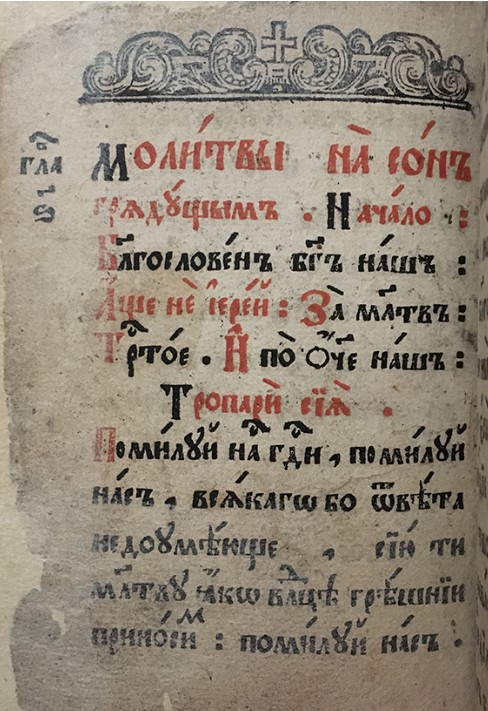 глава̀
ѕ҃і
Моли́твы на̀ со́нъ
грѧдꙋ́щымъ . Нача́ло :
Бл҃гослове́нъ бг҃ъ на́шъ :
А҆́ще нѐ і҆ере́й : За̀ мл҃твъ :
Трⷭ҇то́е . И҆ по̀ Ѻ҆́ч҃е на́шъ :
Тропарѝ сїѧ̀ .
Поми́лꙋй на́съ гдⷭ҇и , поми́лꙋй
на́съ , всѧ́кагѡ бо ѿвѣ́та
недоꙋмѣ́юще , сїю̀ ти
мл҃твꙋ ꙗ҆́кѡ влⷣцѣ грѣ́шнїи
прино́симъ : поми́лꙋй на́съ :